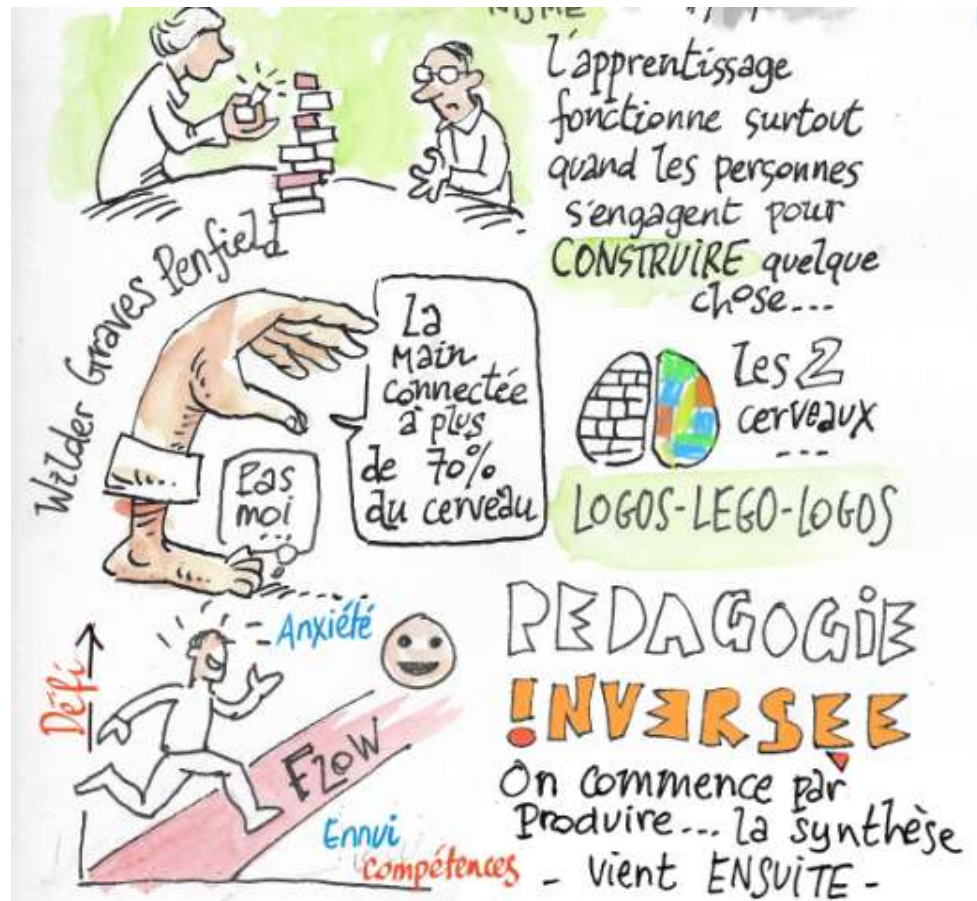 l'apprentissage
fonctionne surtout
quand les personnes
s'engagent pour
CONSTRUIRE quelque
chose...
Wilder Graves Penfield
La
main
connectée
à plus
de 70%
du cerveau
Pas
moi
...
les 2
cerveaux
...
LOGOS-LEGO-LOGOS
Défi
Anxiété
FLOW
Ennui
compétences
PEDAGOGIE
INVERSEE
On commence par
Produire... la synthèse
- vient ENSUITE -